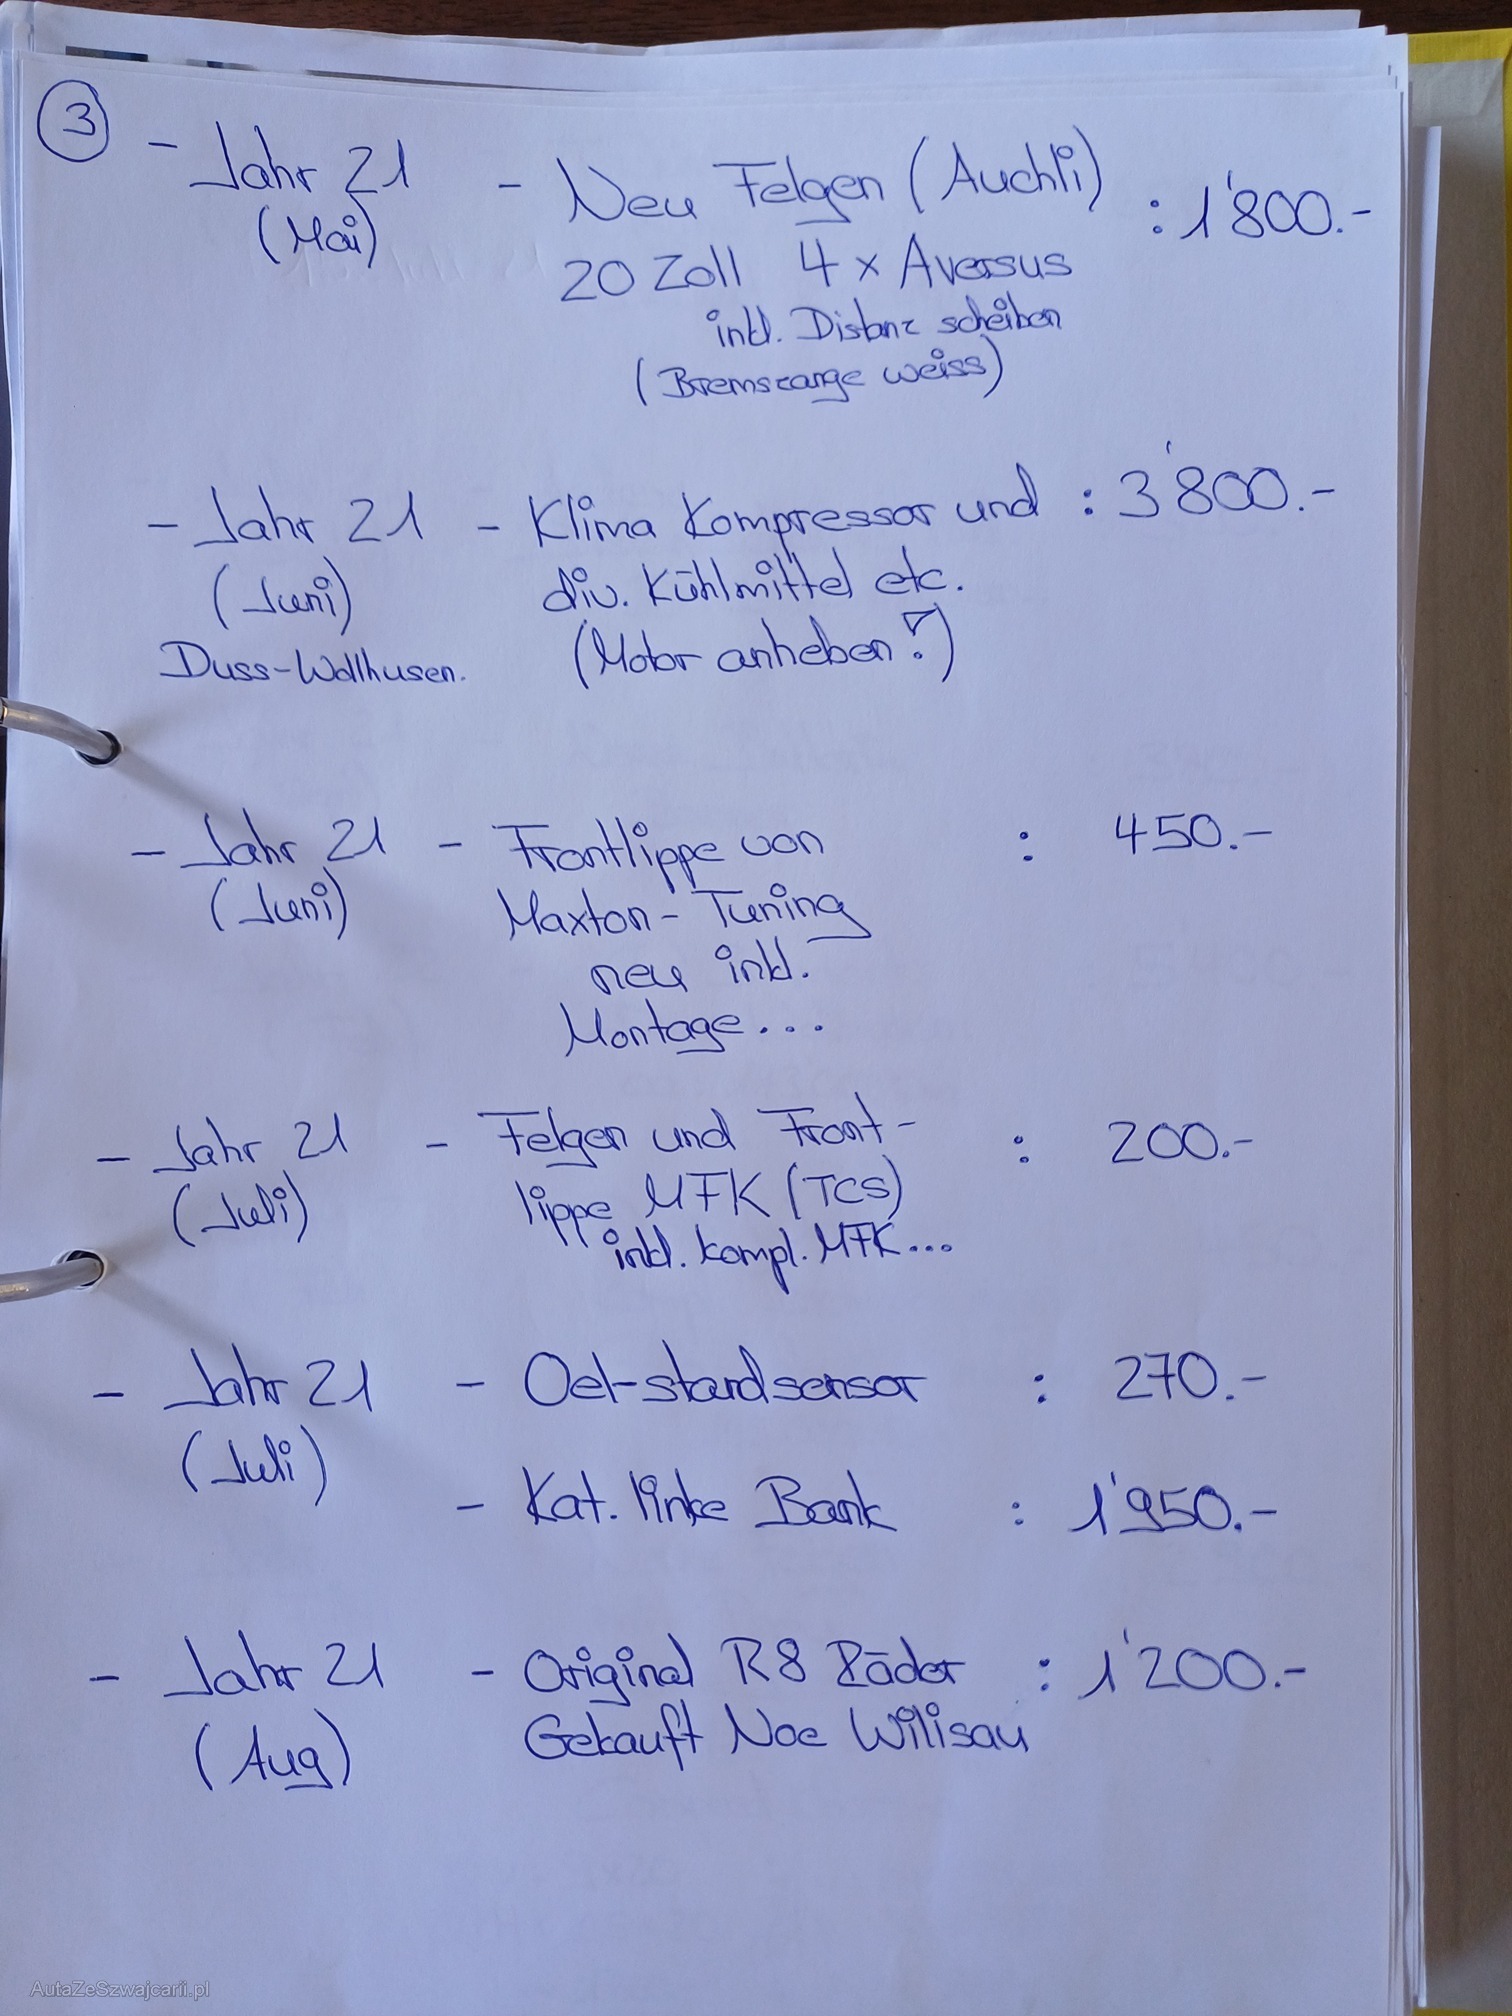 3
- Jahr 21 - Neu Felgen (Auchli) : 1'800.-
(Mai) 20 Zoll 4 x Aversus
inkl. Distanz scheiben
(Bremszange weiss)
- Jahr 21 - Klima Kompressor und : 3'800.-
(Juni) div. Kühlmittel etc.
Duss-Wolhusen. (Motor anheben!)
- Jahr 21 - Frontlippe von : 450.-
(Juni) Maxton-Tuning
neu inkl.
Montage...
- Jahr 21 - Felgen und Front- : 200.-
(Juli) lippe MFK (TCS)
inkl. kompl. MFK...
- Jahr 21 - Oel-standsensor : 270.-
(Juli)
- Kat. linke Bank : 1'950.-
- Jahr 21 - Original R8 Räder : 1'200.-
(Aug) Gekauft Noe Wilisau
AutaZeSzwajcarii.pl